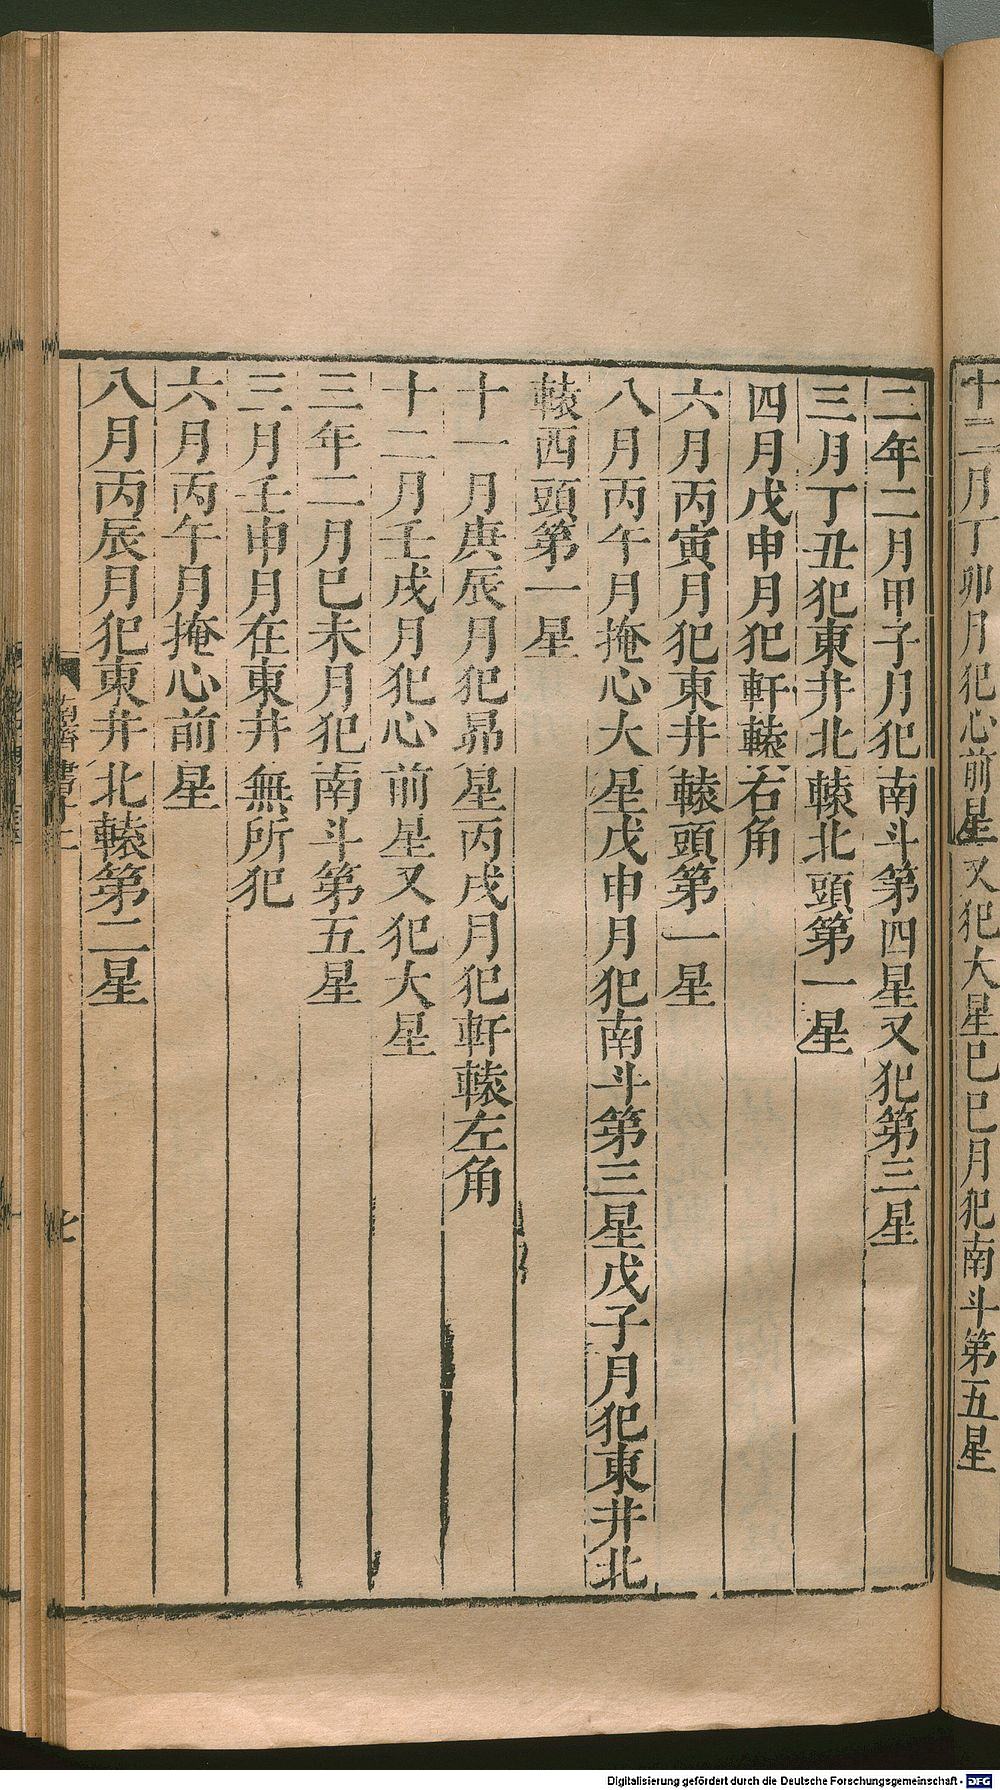 十二月丁卯月犯心前星又犯大星己巳月犯南斗第五星
二年二月甲子月犯南斗第四星又犯第三星
三月丁丑犯東井北轅北頭第一星
四月戊申月犯軒轅右角
六月丙寅月犯東井轅頭第一星
八月丙午月掩心大星戊申月犯南斗第三星戊子月犯東井北
轅西頭第一星
十一月庚辰月犯昴星丙戌月犯軒轅左角
十二月壬戌月犯心前星又犯大星
三年二月己未月犯南斗第五星
三月壬申月在東井無所犯
六月丙午月掩心前星
八月丙辰月犯東井北轅第二星
Digitalisierung gefördert durch die Deutsche Forschungsgemeinschaft - DFG